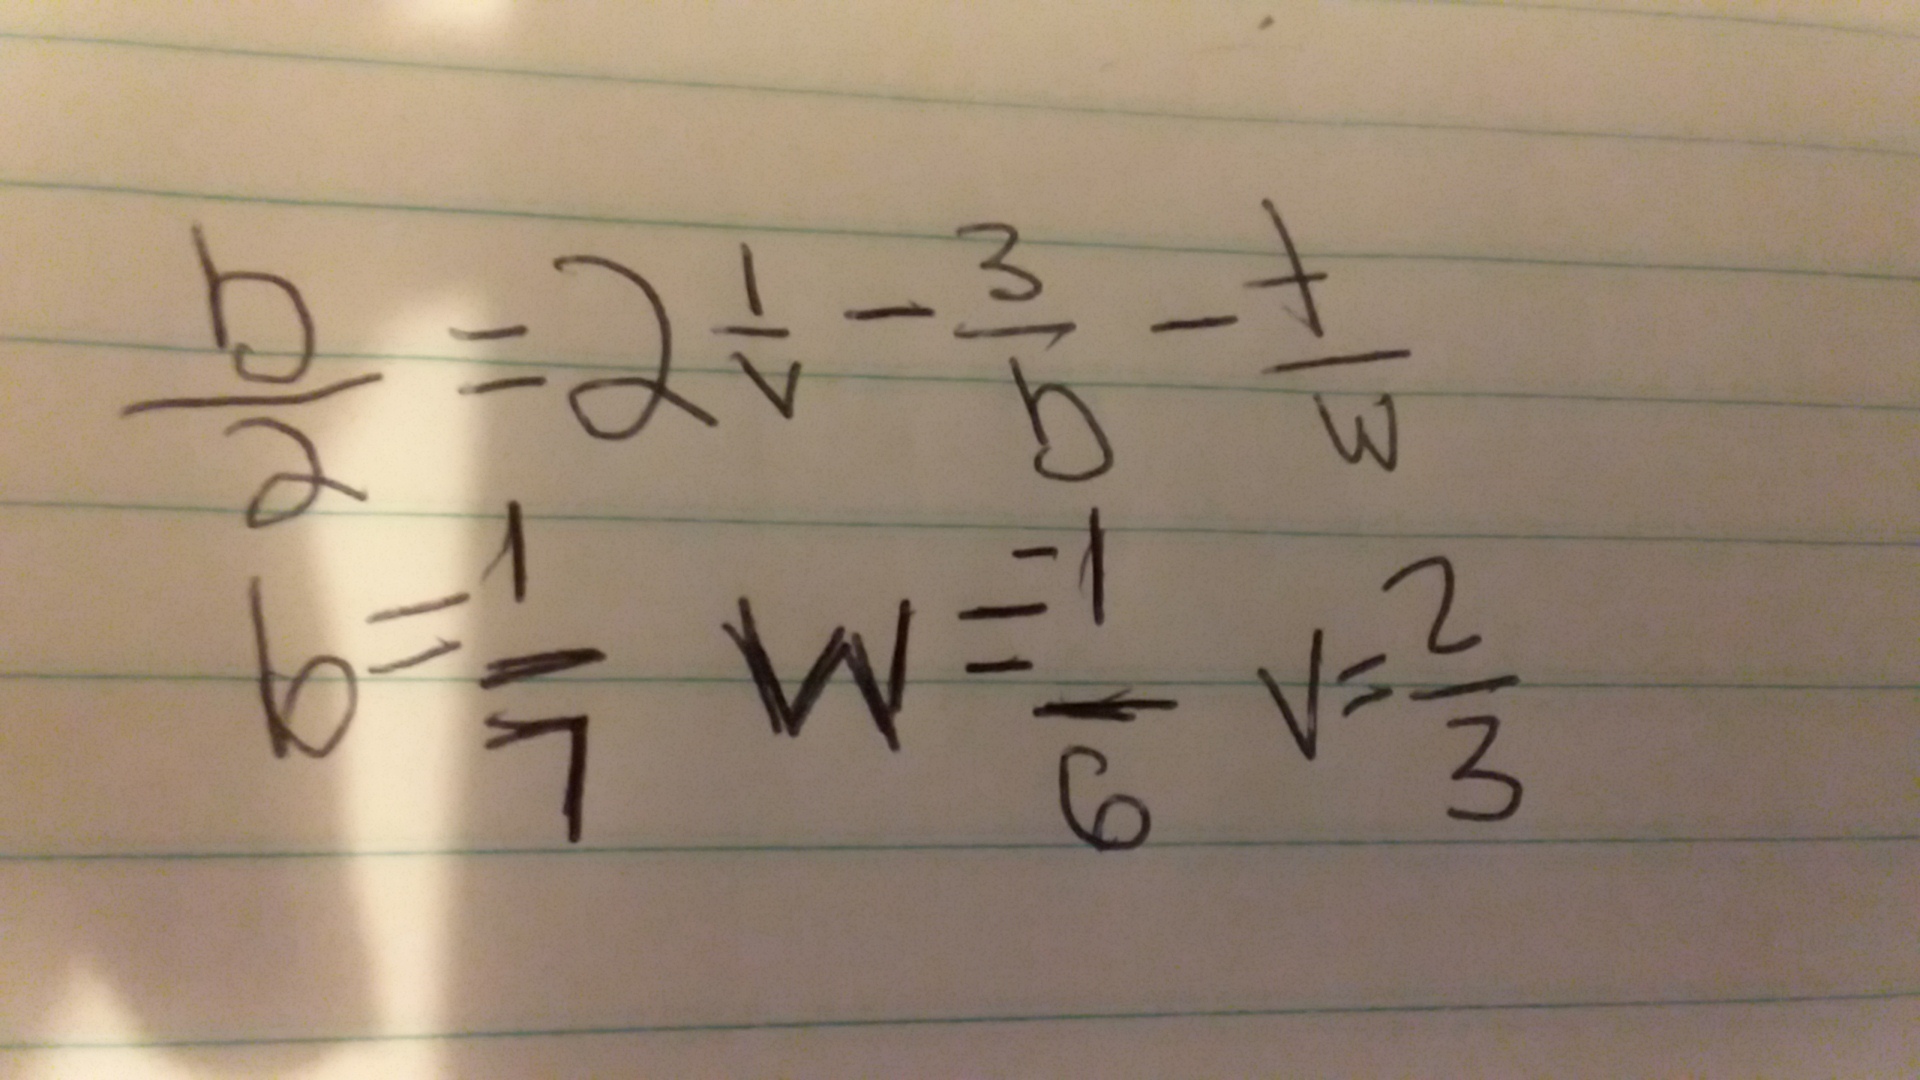 b/2 = 2 1/v - 3/b - t/w
b = 1/7 W = -1/6 v = 2/3